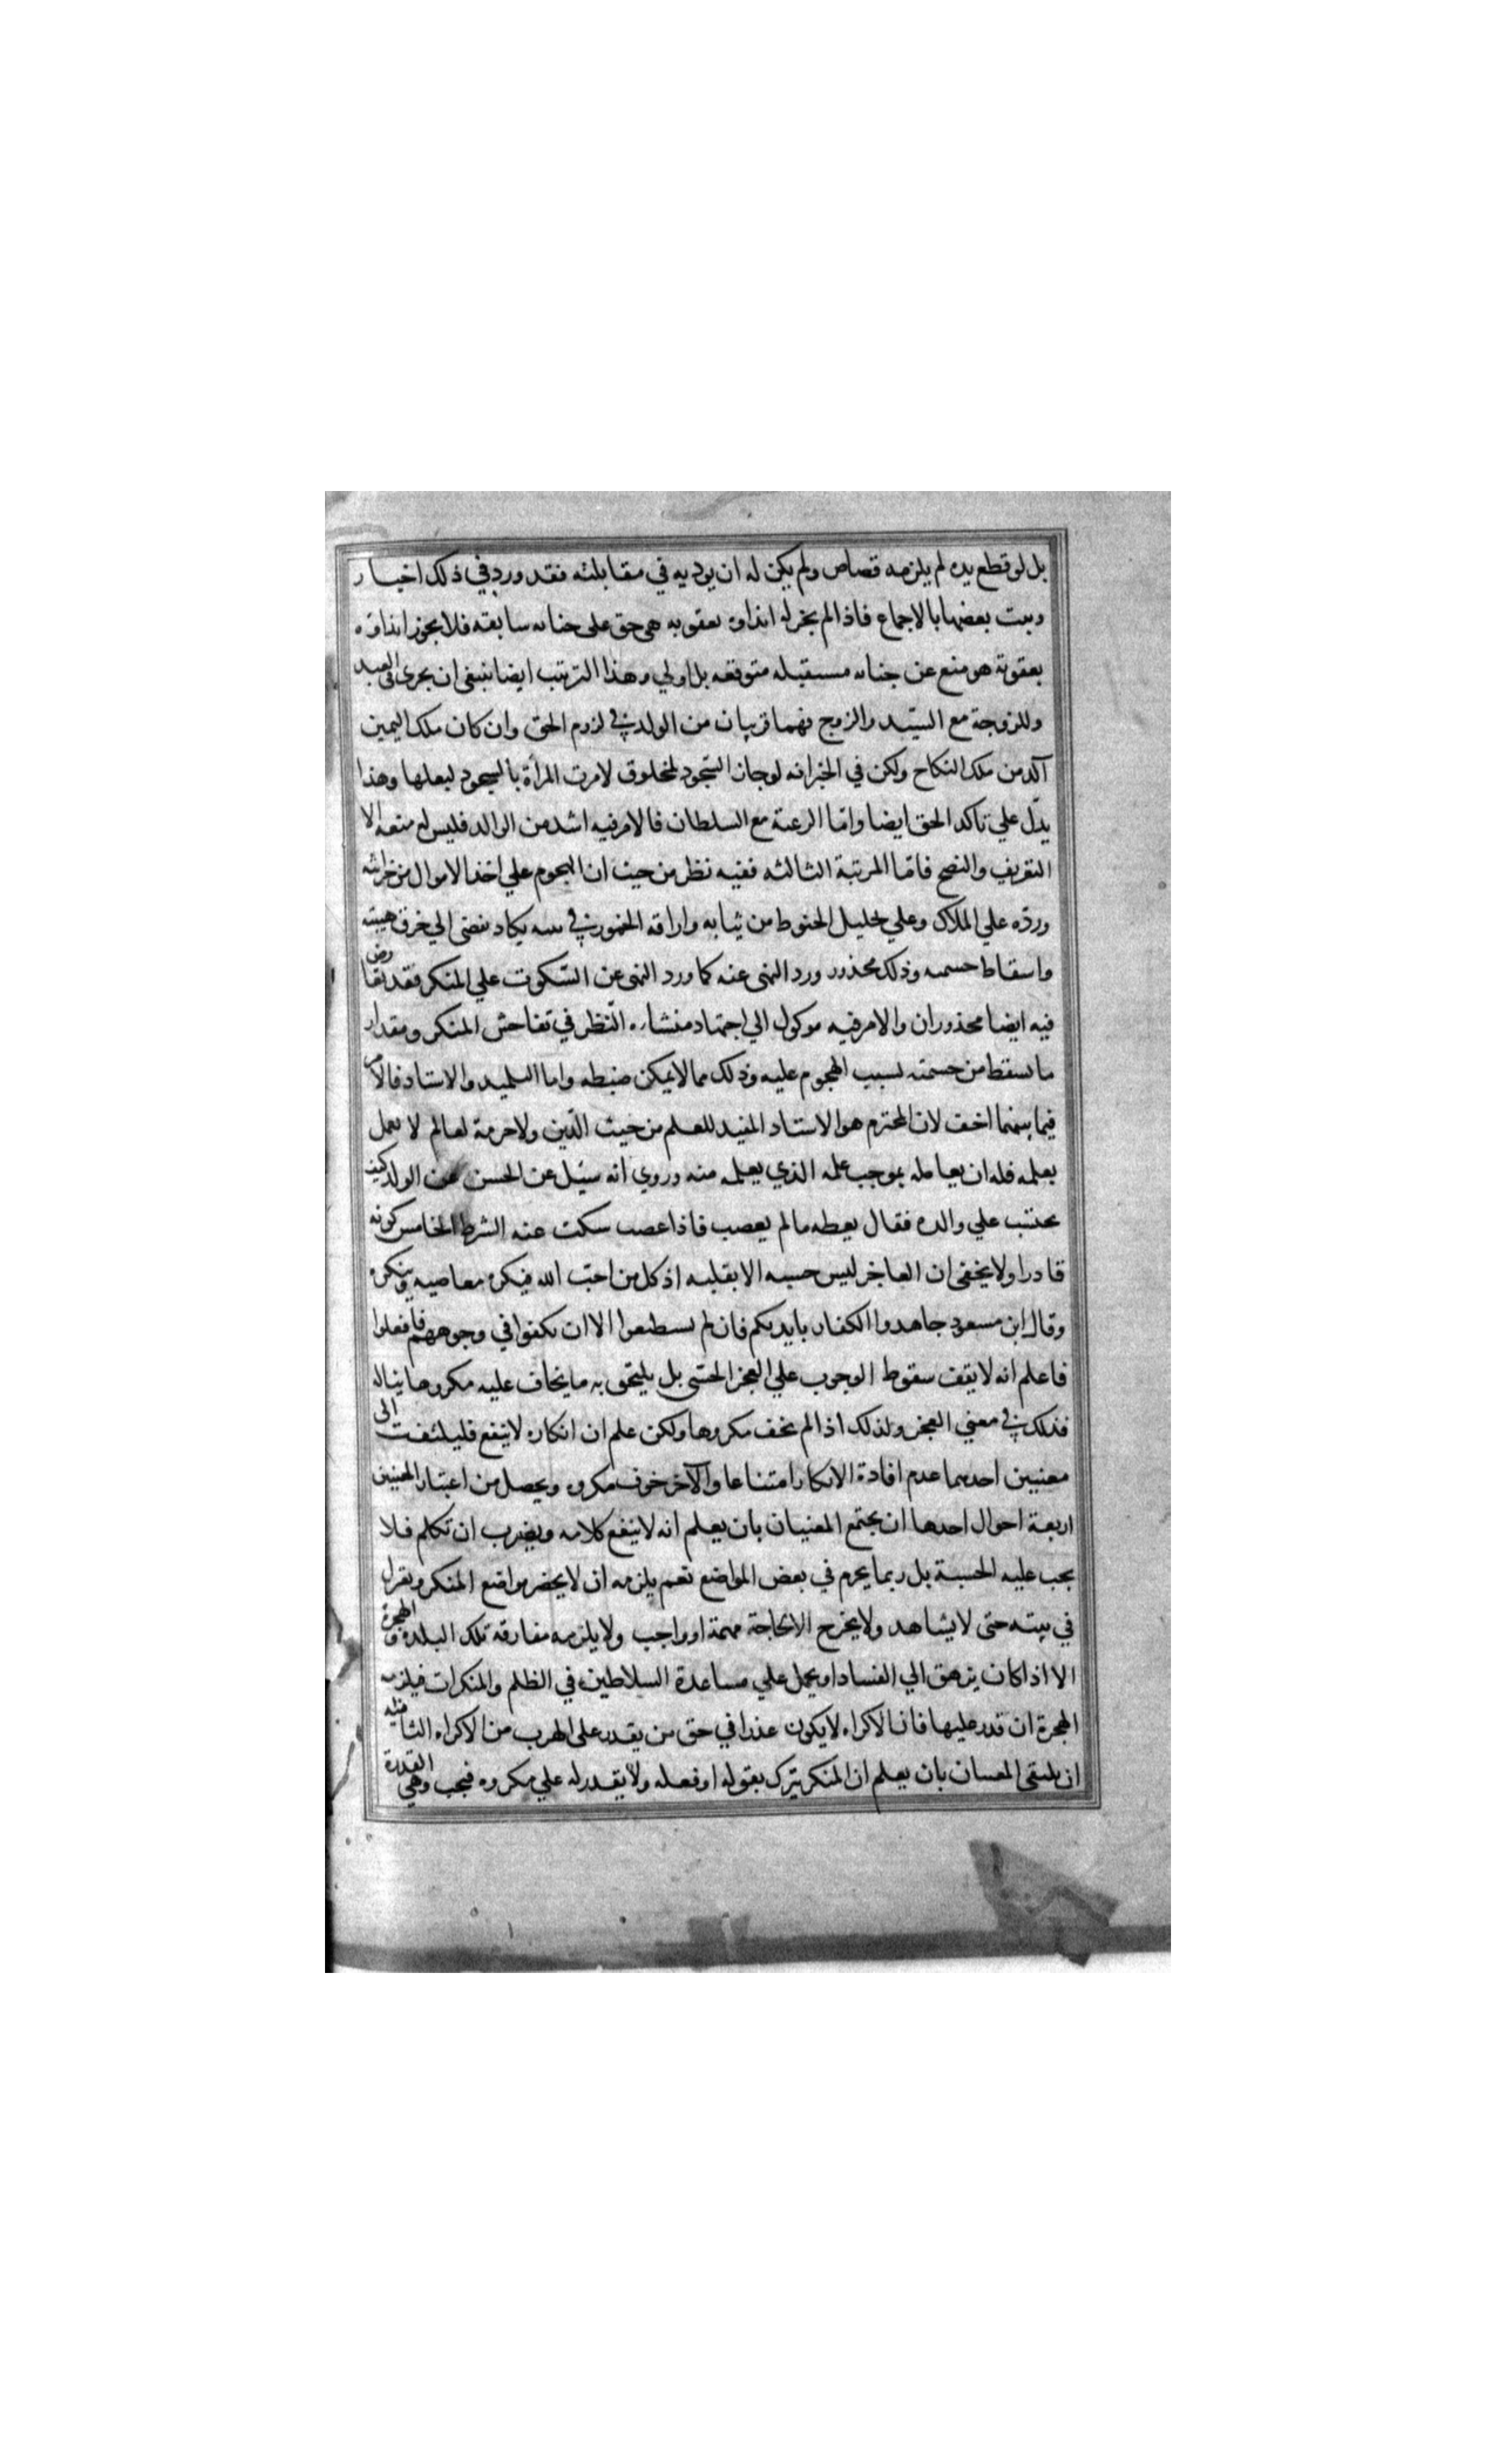 بل لو قطع يده لم يلزمه قصاص ولم يكن له ان يوديه في مقابلته فقد ورد في ذلك اخبار
وثبت بعضها بالاجماع فاذا لم يجز له ايذاوه بعقوبه هي حق على جنايه سابقه فلا يجوز ايذاوه
بعقوبة هو منع عن جنايه مستقبله متوقعه بل اولي وهذا الترتيب ايضا ينبغى ان يجرى فى العبد
وللزوجة مع السيّد والزوج فهما قريبان من الولد في لزوم الحق وان كان ملك اليمين
آكد من ملك النكاح ولكن في الخبر انه لو جاز السّجود لمخلوق لامرت المرأة بالسجود لبعلها وهذا
يدّل علي تاكد الحق ايضا وامّا الرعية مع السلطان فالامر فيه اشد من الوالد فليس له معه الا
التعريف والنصح فامّا المرتبة الثالثه ففيه نظر من حيث ان الهجوم علي اخذ الاموال من خزانته
وردّه علي الملاك وعلي تحليل الخيوط من ثيابه واراقة الخمور في بيته يكاد يفضى الي خرق هيبته
واسقاط حشمته وذلك محذور ورد النهى عنه كما ورد النهى عن السّكوت علي المنكر فقد تعارض
فيه ايضا محذوران والامر فيه موكول الي اجتهاد منشاه النّظر في تفاحش المنكر ومقدار
ما يسقط من حشمته بسبب الهجوم عليه وذلك مما لا يمكن ضبطه واما التلميذ والاستاد فالامر
فيما بينهما اخف لان المحترم هو الاستاد المفيد للعلم من حيث الدّين ولا حرمة لعالم لا يعمل
بعلمه فله ان يعامله بموجب علمه الذي يعلمه منه وروي انه سئل عن الحسن عن الولد كيف
يحتسب علي والده فقال يعظه ما لم يغضب فاذا غضب سكت عنه الشرط الخامس كونه
قادرا ولا يخفى ان العاجز ليس حسبه الا بقلبه اذ كل من احبّ الله فيكره معاصيه وينكره
وقال ابن مسعود جاهدوا الكفار بايديكم فان لم تستطيعوا الا ان تكفهروا في وجوههم فافعلوا
فاعلم انه لا يقف سقوط الوجوب علي العجز الحسّى بل يلتحق به ما يخاف عليه مكروها يناله
فذلك في معني العجز ولذلك اذا لم يخف مكروها ولكن علم ان انكاره لا ينفع فليلتفت الى
معنيين احدهما عدم افادة الانكار امتناعا والآخر خوف مكروه ويحصل من اعتبار المعنيين
اربعة احوال احدها ان يجتمع المعنيان بان يعلم انه لا ينفع كلامه ويضرب ان تكلم فلا
يجب عليه الحسبة بل ربما يحرم في بعض المواضع نعم يلزمه ان لا يحضر مواضع المنكر ويعزل
في بيته حتى لا يشاهد ولا يخرج الا لحاجة مهمة او واجب ولا يلزمه مفارقة تلك البلده والهجرة
الا اذا كان يرهق الي الفساد او يحمل علي مساعدة السلاطين في الظلم والمنكرات فيلزمه
الهجرة ان قدر عليها فان الاكراه لا يكون عذرا في حق من يقدر على الهرب من الاكراه الثانيه
ان ينتفى المعنيان بان يعلم ان المنكر يترك بقوله او فعله ولا يقدر له علي مكروه فيجب وهي القدرة